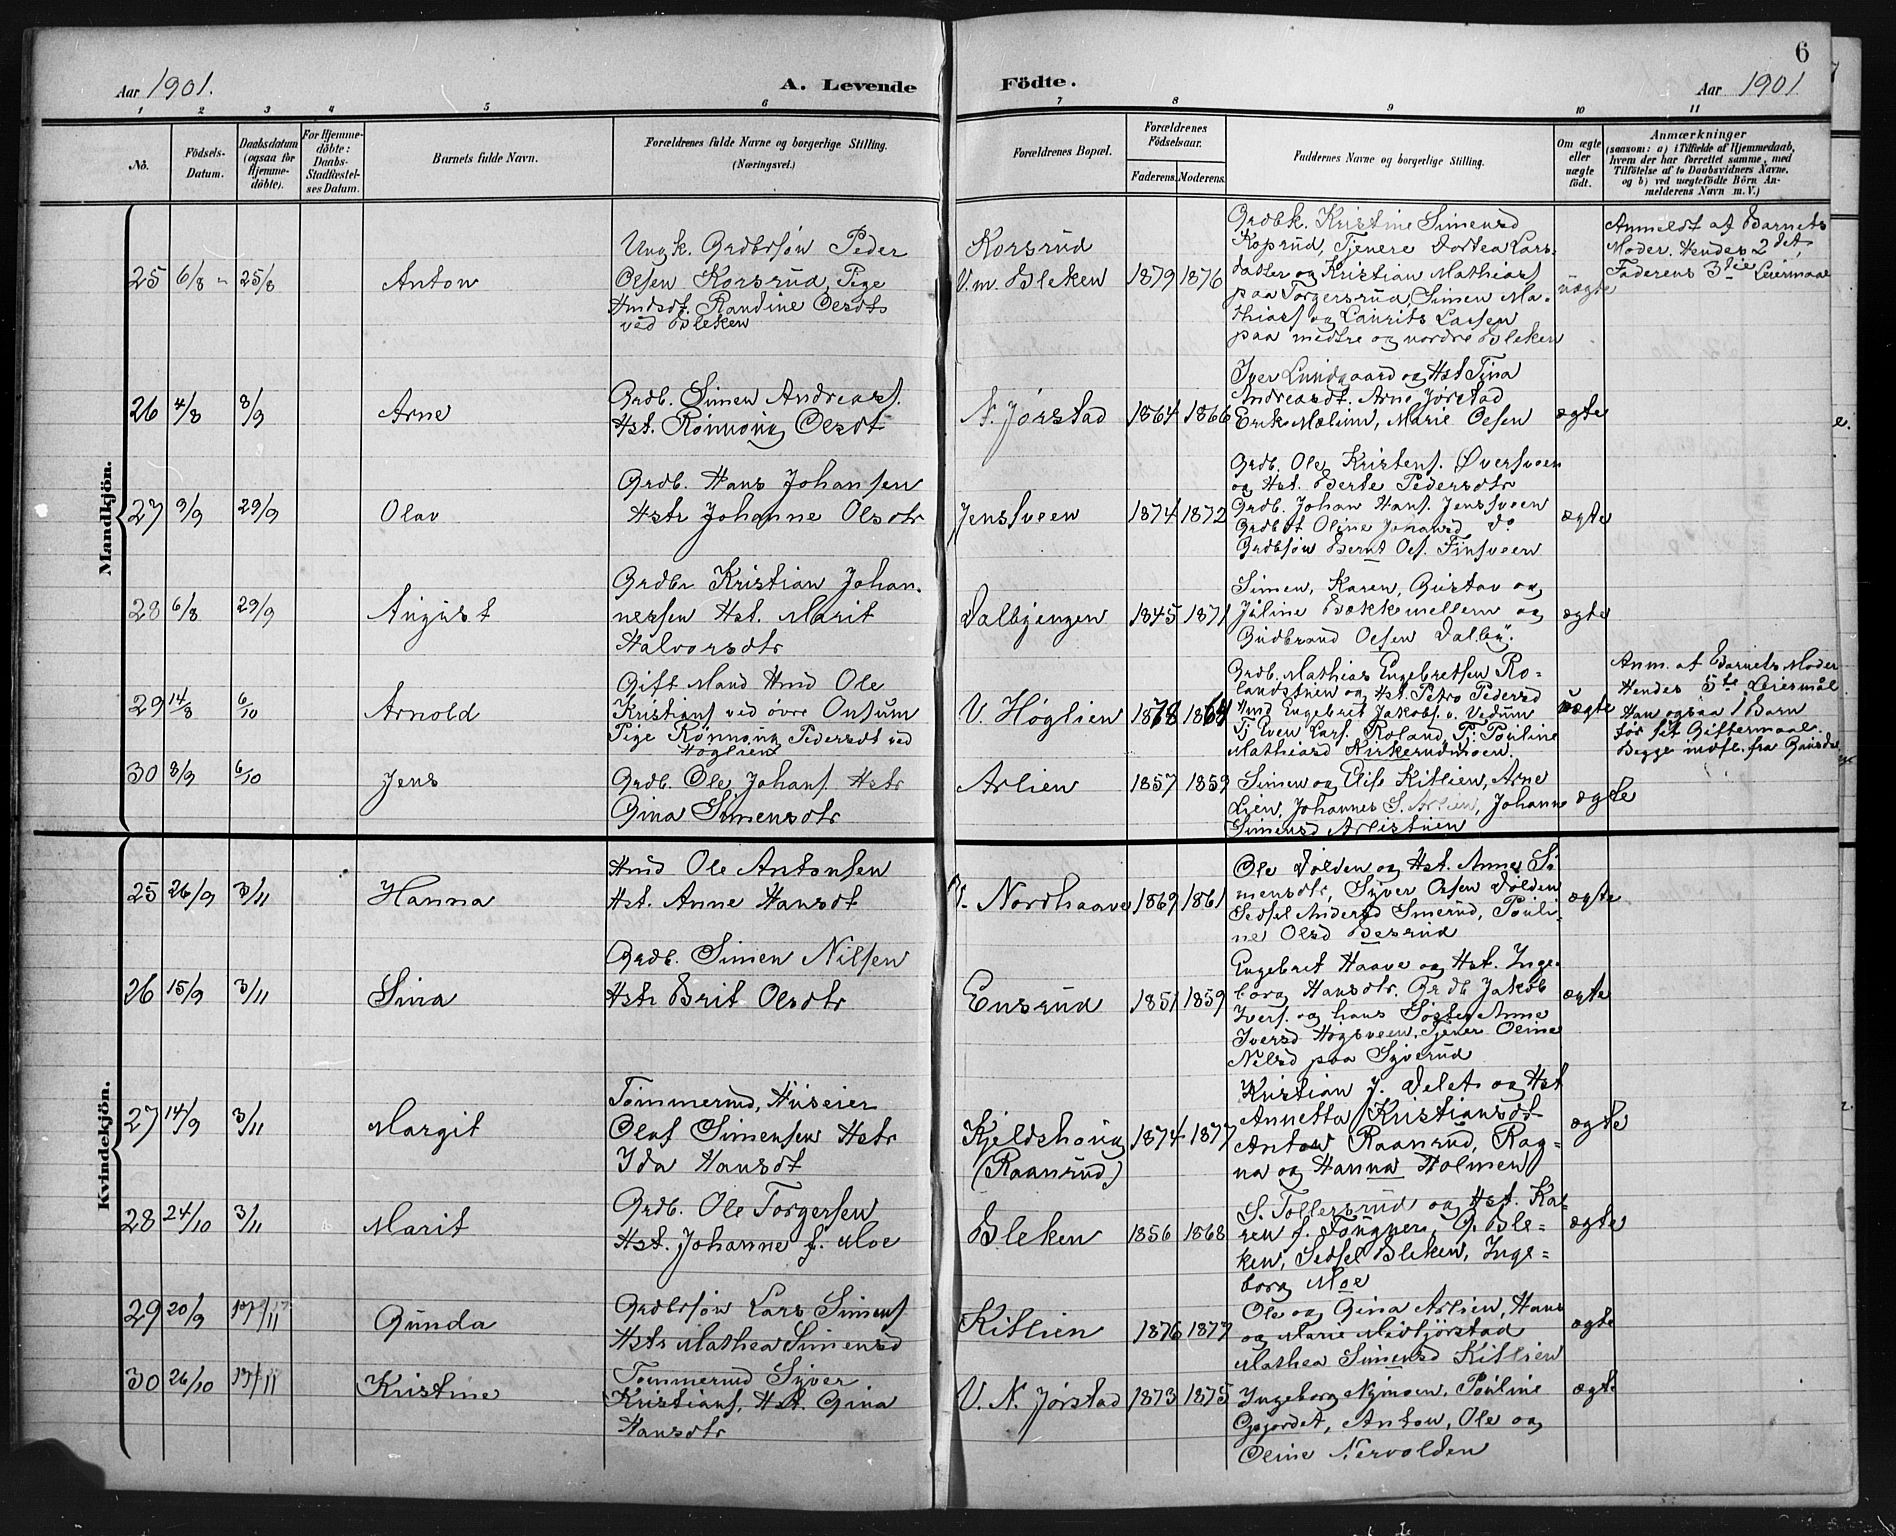 6
Aar 1901.
A. Levende
Födte.
Aar 1901
1 2 3 4 5 6 7 8 9 10 11
No.
Födsels-
Datum.
Daabsdatum
(ogsaa for
Hjemme-
döbte).
For Hjemme-
döbte:
Daabs-
Stadfæstel-
ses Datum.
Barnets fulde Navn.
Forældrenes fulde Navne og borgerlige Stilling.
(Næringsvei.)
Forældrenes Bopæl.
Forældrenes
Födselsaar.
Faderens. Moderens.
Faddernes Navne og borgerlige Stilling.
Om ægte
eller
uægte
födt.
Anmærkninger
(saasom: a) i Tilfælde af Hjemmedaab,
hvem der har forrettet samme, med
Tilföielse af to Daabsvidners Navne.
og b) ved uægtefödte Börn An-
melderens Navn m. V.)
Mandkjön.
25 6/8 25/8
Anton
Ungk. Grdbrsøn Peder
Olsen Korsrud, Pige
Hmdsdt. Randine Olsdtr
ved Bleken
Korsrud
V. m. Bleken
1879 1876
Grdbk. Kristine Simensd
Koprud, Tjenere Dortea Lars-
datter og Kristian Mathiass
paa Torgersrud, Simen Ma-
thiass og Laurits Larsen
paa medtre og nordre Bleken
uægte
Anmeldt af Barnets
Moder. Hendes 2det,
Faderens 3die Leiermaal
26 4/8 8/9
Arne
Grdb. Simen Andreass.
Hst. Rønnoug Olsdt
N. Jørstad
1864 1866
Iver Lundgaard og Hst Tina
Andreasdt. Arne Jørstad
Erik Mælum, Marie Olsen
ægte
27 9/9 29/9
Olav
Grdb. Hans Johansen
Hstr Johanne Olsdtr
Jenssveen
1874 1872
Grdb. Ole Kristens. Øversveen
og Hst. Berte Pedersdtr
Grdb. Johan Hans. Jenssveen
Grdbdt Oline Johansd do
Grdbsøn Bernt Ols. Finsveen
ægte
28 6/8 29/9
August
Grdbr Kristian Johan-
nessen Hst. Marit
Halvorsdtr
Dalbyengen
1845 1871
Simen, Karen, Gustav og
Juline Bækkemellem og
Gudbrand Olsen Dalby.
ægte
29 14/8 6/10
Arnold
Gift Mand Hmd Ole
Kristians ved øvre Onsum
Pige Rønnoug Pedersdt ved
Høglien
V. Høglien
1878 1864
Grdb. Mathias Engebretsen Ro-
landstuen og Hst. Petro Pedersd
Hmd Engebret Jakobs. v. Vedum
Tj Even Lars. Roland, P. Pouline
Mathiasd Kirkerudmoen.
uægte
Anm. af Barnets Moder
Hendes 5te Leiermål
Han ogsaa 1 Barn
før sit Giftermaal.
Begge indfl. fra Gausdal
30 8/9 6/10
Jens
Grdb. Ole Johans. Hstr
Gina Simensdtr
Arlien
1857 1859
Simen og Elise Kitlien, Arne
Lien, Johannes S. Arlien, Johanne
Simensd Arlistuen
ægte
Kvindekjön.
25 26/9 3/11
Hanna
Hmd Ole Antonsen
Hst. Anne Hansdt
V. Nordhaave
1869 1861
Ole Dolden og Hst. Anne Si-
mensdtr, Syver Olsen Dolden
Sedsel Andersd Smerud, Pouli-
ne Olsd Besrud
ægte
26 15/9 3/11
Sina
Grdb. Simen Nilsen
Hstr Brit Olsdtr
Ensrud
1851 1859
Engebret Haave og Hst. Inge-
borg Hansdtr. Grdb Jakob
Ivers. og hans Søster Anne
Iversd Høgsveen, Tjener Oline
Nilsd paa Syverud
ægte
27 14/9 3/11
Margit
Tømmermd, Huseier
Oluf Simensen Hstr
Ida Hansdt
Kjeldshoug
(Raanrud)
1874 1877
Kristian J. Delet og Hst
Annetta Kristiansdt
Anton Raanrud, Rag-
na og Hanna Holmen
ægte
28 24/10 3/11
Marit
Grdb. Ole Torgersen
Hst. Johanne f. Moe
Bleken
1856 1868
S. Tollersrud og Hst. Ka-
ren f. Fougner, G. Ble-
ken, Sedsel Bleken, Inge-
borg Moe
ægte
29 20/9 17/11
Gunda
Grdbrsøn Lars Simens
Hstr Mathea Simensd
Kitlien
1876 1877
Ole og Gina Arlien, Hans
og Marie Midtjørstad
Mathea Simensd Kitlien
ægte
30 26/10 17/11
Kristine
Tømmermd Syver
Kristians, Hst. Gina
Hansdtr
V. N. Jørstad
1873 1875
Ingeborg Nymoen, Pouline
Opjordet, Anton, Ole og
Oline Nervolden
ægte